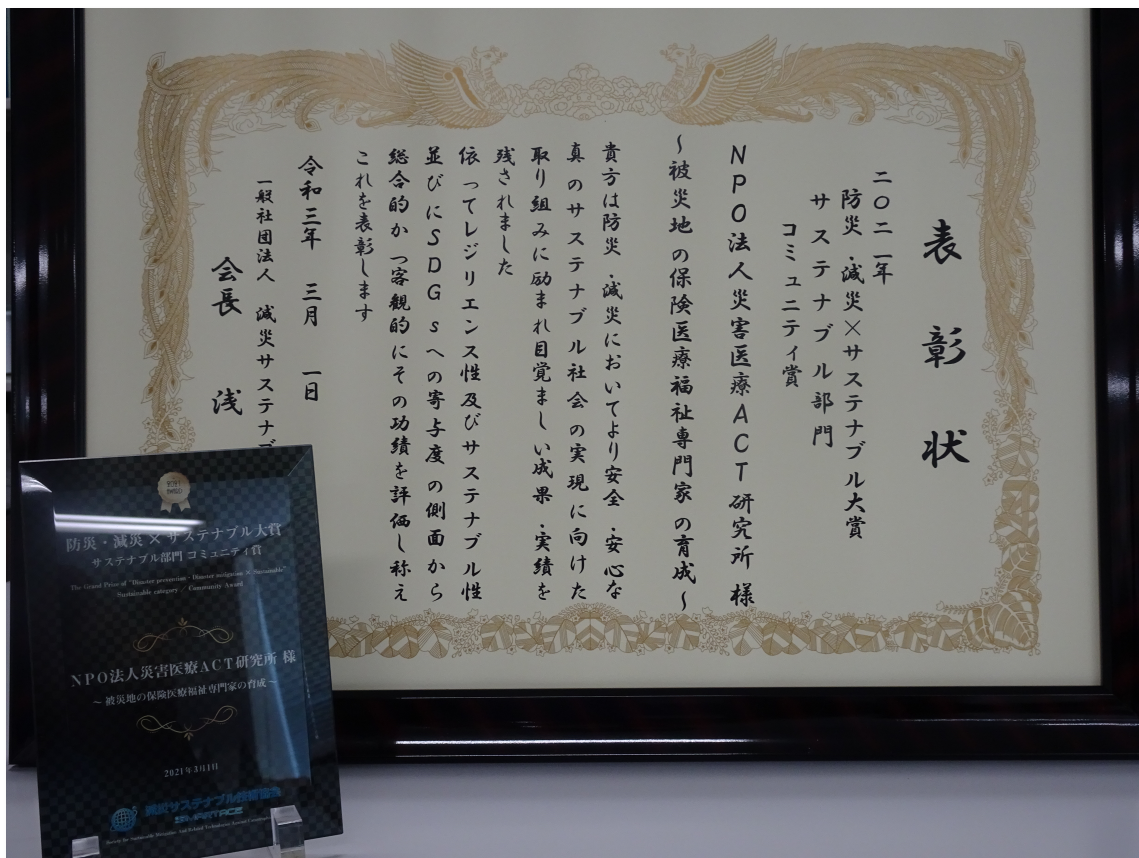 表彰状
二〇二一年
防災・減災×サステナブル大賞
サステナブル部門
コミュニティ賞
NPO法人災害医療ACT研究所 様
~被災地の保険医療福祉専門家の育成~
貴方は防災・減災においてより安全・安心な
真のサステナブル社会の実現に向けた
取り組みに励まれ目覚ましい成果・実績を
残されました
依ってレジリエンス性及びサステナブル性
並びにSDGsへの寄与度の側面から
総合的かつ客観的にその功績を評価し称え
これを表彰します
令和三年 三月 一日
一般社団法人 減災サステナブ
会長 浅
2021
AWARD
防災・減災×サステナブル大賞
サステナブル部門 コミュニティ賞
The Grand Prize of "Disaster prevention・Disaster mitigation × Sustainable"
Sustainable category / Community Award
NPO法人災害医療ACT研究所 様
~被災地の保険医療福祉専門家の育成~
2021年3月1日
減災サステナブル技術協会